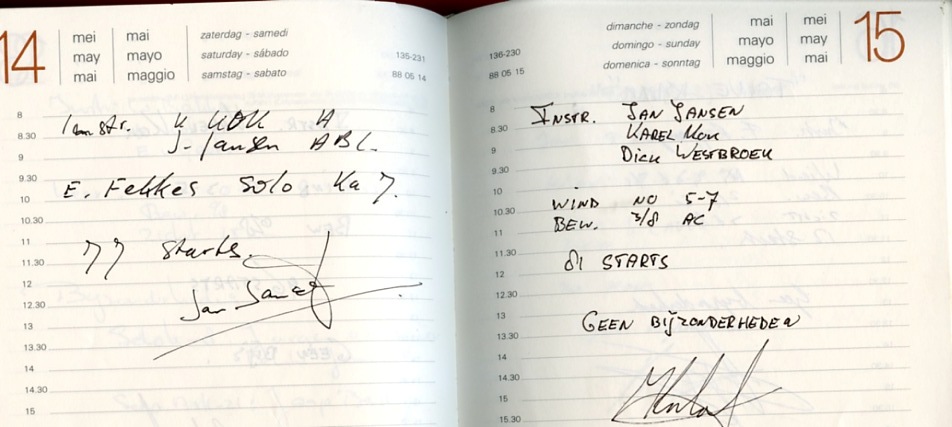 14
mei mai zaterdag - samedi
may mayo saturday - sábado 135-231
mai maggio samstag - sabato 88 05 14
8
Instr. K KOK A
8.30
J. Jansen ABC.
9
9.30
E. Fekkes Solo Ka 7.
10
10.30
11
77 Starts.
11.30
12
Jan Jansen
12.30
13
13.30
14
14.30
15
dimanche - zondag mai mei 15
136-230 domingo - sunday mayo may
88 05 15 domenica - sonntag maggio mai
8
INSTR. JAN JANSEN
8.30
KAREL KOK
9
DICK WESTBROEK
9.30
10
WIND NO 5-7
10.30
BEW. 3/8 AC
11
11.30
81 STARTS
12
12.30
13
GEEN BIJZONDERHEDEN
13.30
14
14.30
15
15.30